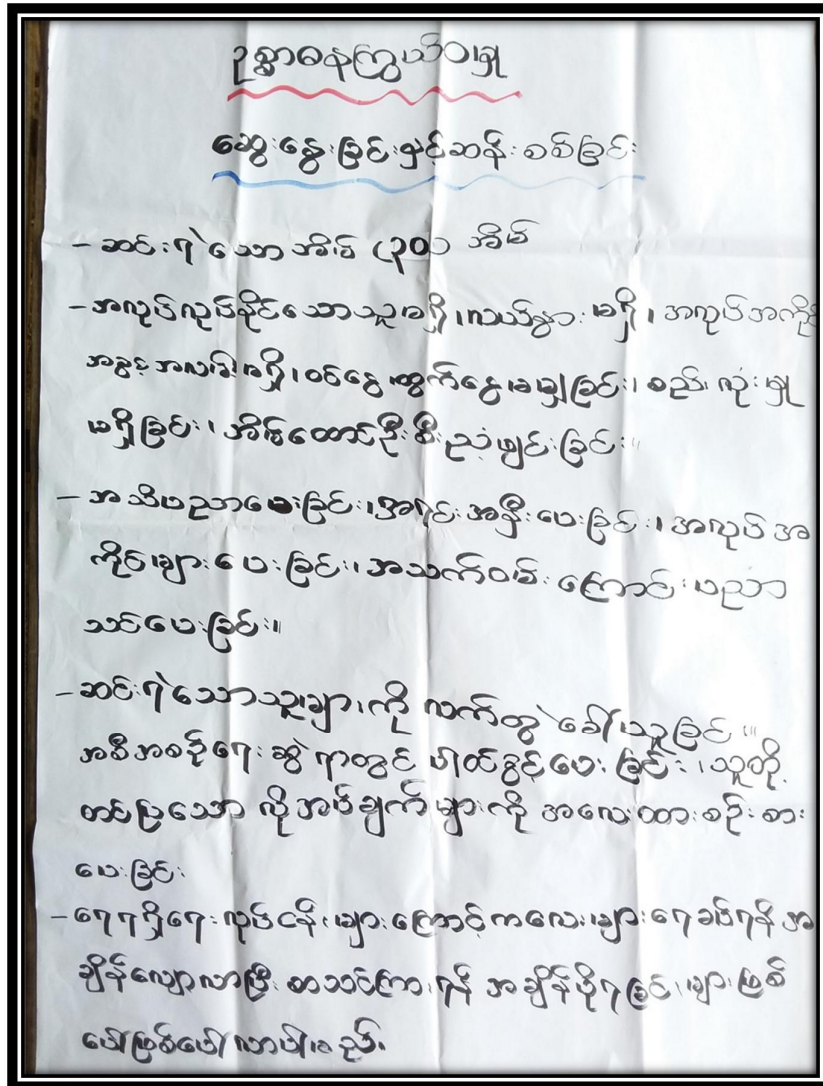 ဥစ္စာဓနကြွယ်ဝမှု
ဆွေးနွေးခြင်းနှင့်ဆန်းစစ်ခြင်း
- ဆင်းရဲသောအိမ် (၃၀) အိမ်
- အလုပ်လုပ်နိုင်သောသူမရှိ၊ လယ်မွားမရှိ၊ အလုပ်အကိုင်
အခွင့်အလမ်းမရှိ၊ ဝင်ငွေထွက်ငွေမမျှခြင်း၊ စည်းလုံးမှု
မရှိခြင်း၊ အိမ်ထောင်ဦးစီးညံ့ဖျင်းခြင်း။
- အသိပညာပေးခြင်း၊ အရင်းအနှီးပေးခြင်း၊ အလုပ်အ
ကိုင်များပေးခြင်း၊ အသက်ဝမ်းကြောင်းပညာ
သင်ပေးခြင်း။
- ဆင်းရဲသောသူများကို လက်တွဲခေါ်ယူခြင်း။
အစီအစဉ်ရေးဆွဲရာတွင် ပါဝင်ခွင့်ပေးခြင်း၊ သူတို့
တင်ပြသော လိုအပ်ချက်များကို အလေးထားစဉ်းစား
ပေးခြင်း
- ရေရရှိရေးလုပ်ငန်းများကြောင့်ကလေးများရေခပ်ရန်အ
ချိန်လျော့လာပြီး စာသင်ကြားရန် အချိန်ပိုရခြင်းများဖြစ်
ပေါ်ဖြစ်ပေါ်လာပါသည်။